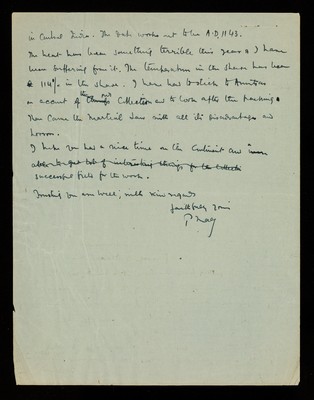 in Central India. The date works out to be A.D. 1143.
The heat has been something terrible this year & I have
been suffering from it. The temperature in the shade has been
114° in the shade. I have had to stick to Amritsar
on account of the Collection and to look after the packing.
Now came the Martial Law with all its disadvantages and
horrors.
I hope you had a nice time on the Continent and were
able to get lot of interesting things for the Collection
successful for the work.
Trusting you are well; with kind regards
faithfully yours